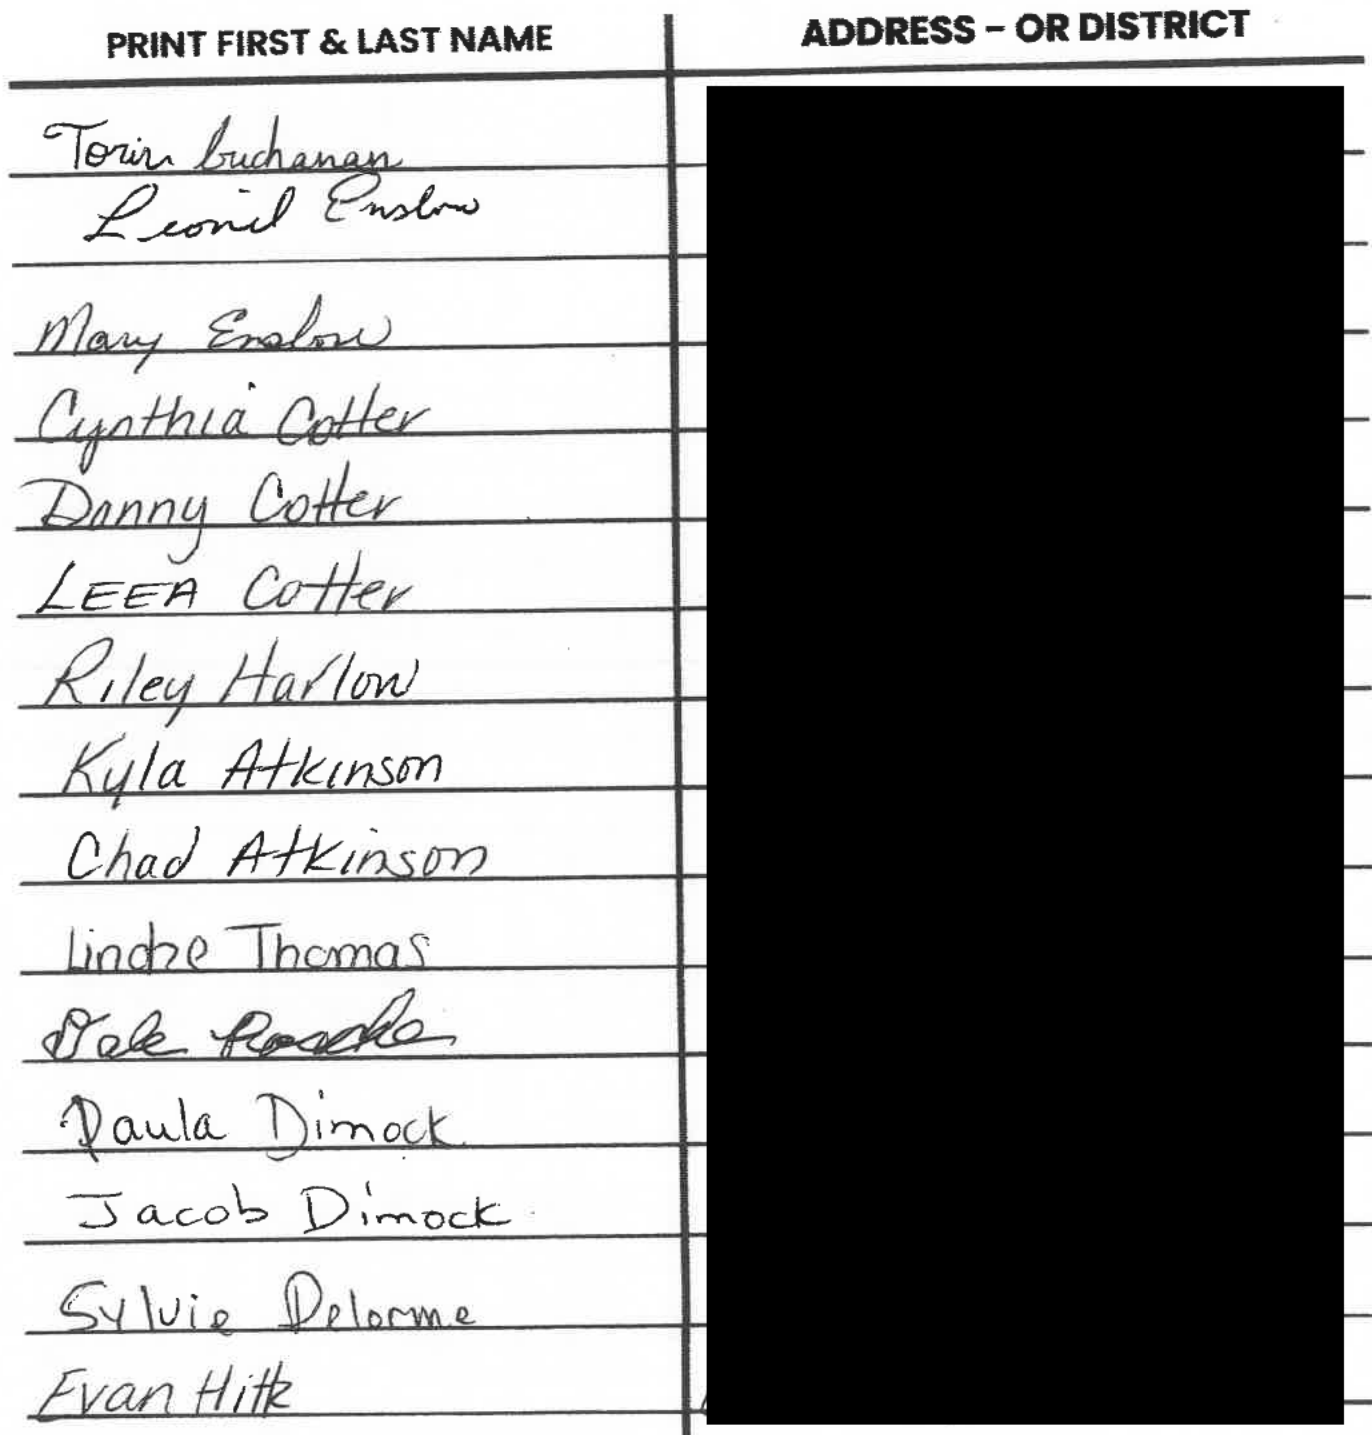 PRINT FIRST & LAST NAME ADDRESS – OR DISTRICT
Torin buchanan
Enslow
Mary Enslow
Cynthia Cotter
Danny Cotter
LEEA Cotter
Riley Harlow
Kyla Atkinson
Chad Atkinson
Thomas
Dale
Paula Dimock
Jacob Dimock
Sylvie Delorme
Evan